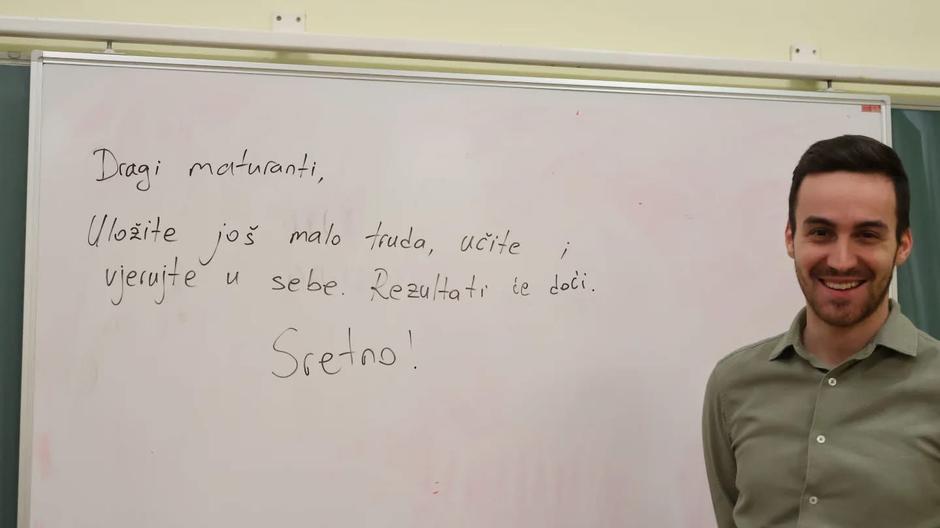 Dragi maturanti,
Uložite još malo truda, učite i
vjerujte u sebe. Rezultati će doći.
Sretno!